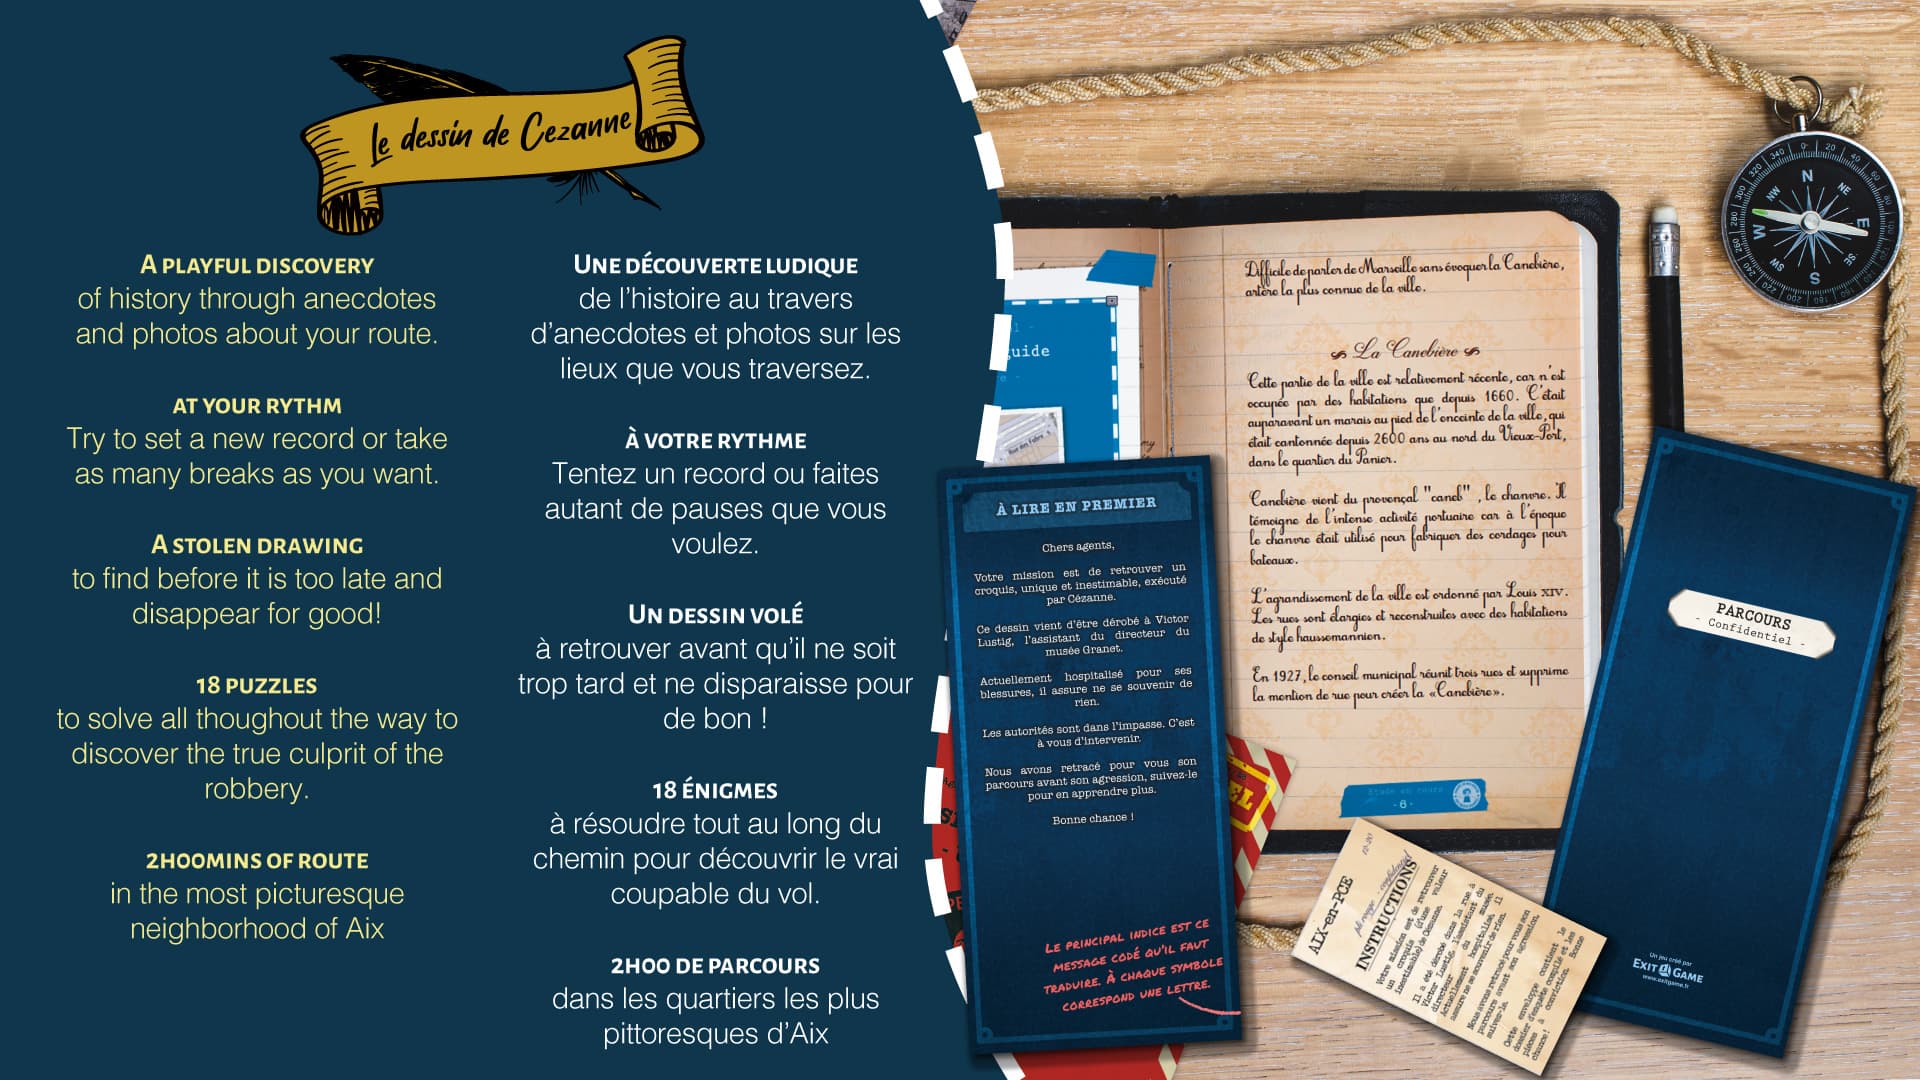 Le dessin de Cezanne
A PLAYFUL DISCOVERY
of history through anecdotes
and photos about your route.
AT YOUR RYTHM
Try to set a new record or take
as many breaks as you want.
A STOLEN DRAWING
to find before it is too late and
disappear for good!
18 PUZZLES
to solve all thoughout the way to
discover the true culprit of the
robbery.
2H00MINS OF ROUTE
in the most picturesque
neighborhood of Aix
UNE DÉCOUVERTE LUDIQUE
de l’histoire au travers
d’anecdotes et photos sur les
lieux que vous traversez.
À VOTRE RYTHME
Tentez un record ou faites
autant de pauses que vous
voulez.
UN DESSIN VOLÉ
à retrouver avant qu’il ne soit
trop tard et ne disparaisse pour
de bon !
18 ÉNIGMES
à résoudre tout au long du
chemin pour découvrir le vrai
coupable du vol.
2H00 DE PARCOURS
dans les quartiers les plus
pittoresques d’Aix
guide
À LIRE EN PREMIER
Chers agents,
Votre mission est de retrouver un
croquis, unique et inestimable, exécuté
par Cézanne.
Ce dessin vient d’être dérobé à Victor
Lustig, l’assistant du directeur du
musée Granet.
Actuellement hospitalisé pour ses
blessures, il assure ne se souvenir de
rien.
Les autorités sont dans l’impasse. C’est
à vous d’intervenir.
Nous avons retracé pour vous son
parcours avant son agression, suivez-le
pour en apprendre plus.
Bonne chance !
LE PRINCIPAL INDICE EST CE
MESSAGE CODÉ QU’IL FAUT
TRADUIRE. À CHAQUE SYMBOLE
CORRESPOND UNE LETTRE.
Difficile de parler de Marseille sans évoquer la Canebière,
artère la plus connue de la ville.
La Canebière
Cette partie de la ville est relativement récente, car n’est
occupée par des habitations que depuis 1660. C’était
auparavant un marais au pied de l’enceinte de la ville, qui
était cantonnée depuis 2600 ans au nord du Vieux-Port,
dans le quartier du Panier.
Canebière vient du provençal "caneb" , le chanvre. Il
témoigne de l’intense activité portuaire car à l’époque
le chanvre était utilisé pour fabriquer des cordages pour
bateaux.
L’agrandissement de la ville est ordonné par Louis XIV.
Les rues sont élargies et reconstruites avec des habitations
de style haussemannien.
En 1927, le conseil municipal réunit trois rues et supprime
la mention de rue pour créer la «Canebière».
Etude en cours
-8-
AIX-en-PCE
12-20
confidentiel
INSTRUCTIONS
Votre mission est de retrouver
un croquis (d’une valeur
inestimable) de Cézanne.
Il a été dérobé dans la rue à
Victor Lustig, l’assistant du
directeur du musée.
Actuellement hospitalisé, il
assure ne se souvenir de rien.
Nous avons retracé pour vous son
parcours avant son agression,
suivez-le.
Cette enveloppe contient le
dossier d’enquête compilé et les
pièces à conviction. Bonne
chance !
PARCOURS
- Confidentiel -
Un jeu créé par
EXIT GAME
www.exitgame.fr
N
NE
E
SE
S
SW
W
NW
0
20
40
60
80
100
120
140
160
180
200
220
240
260
280
300
320
340